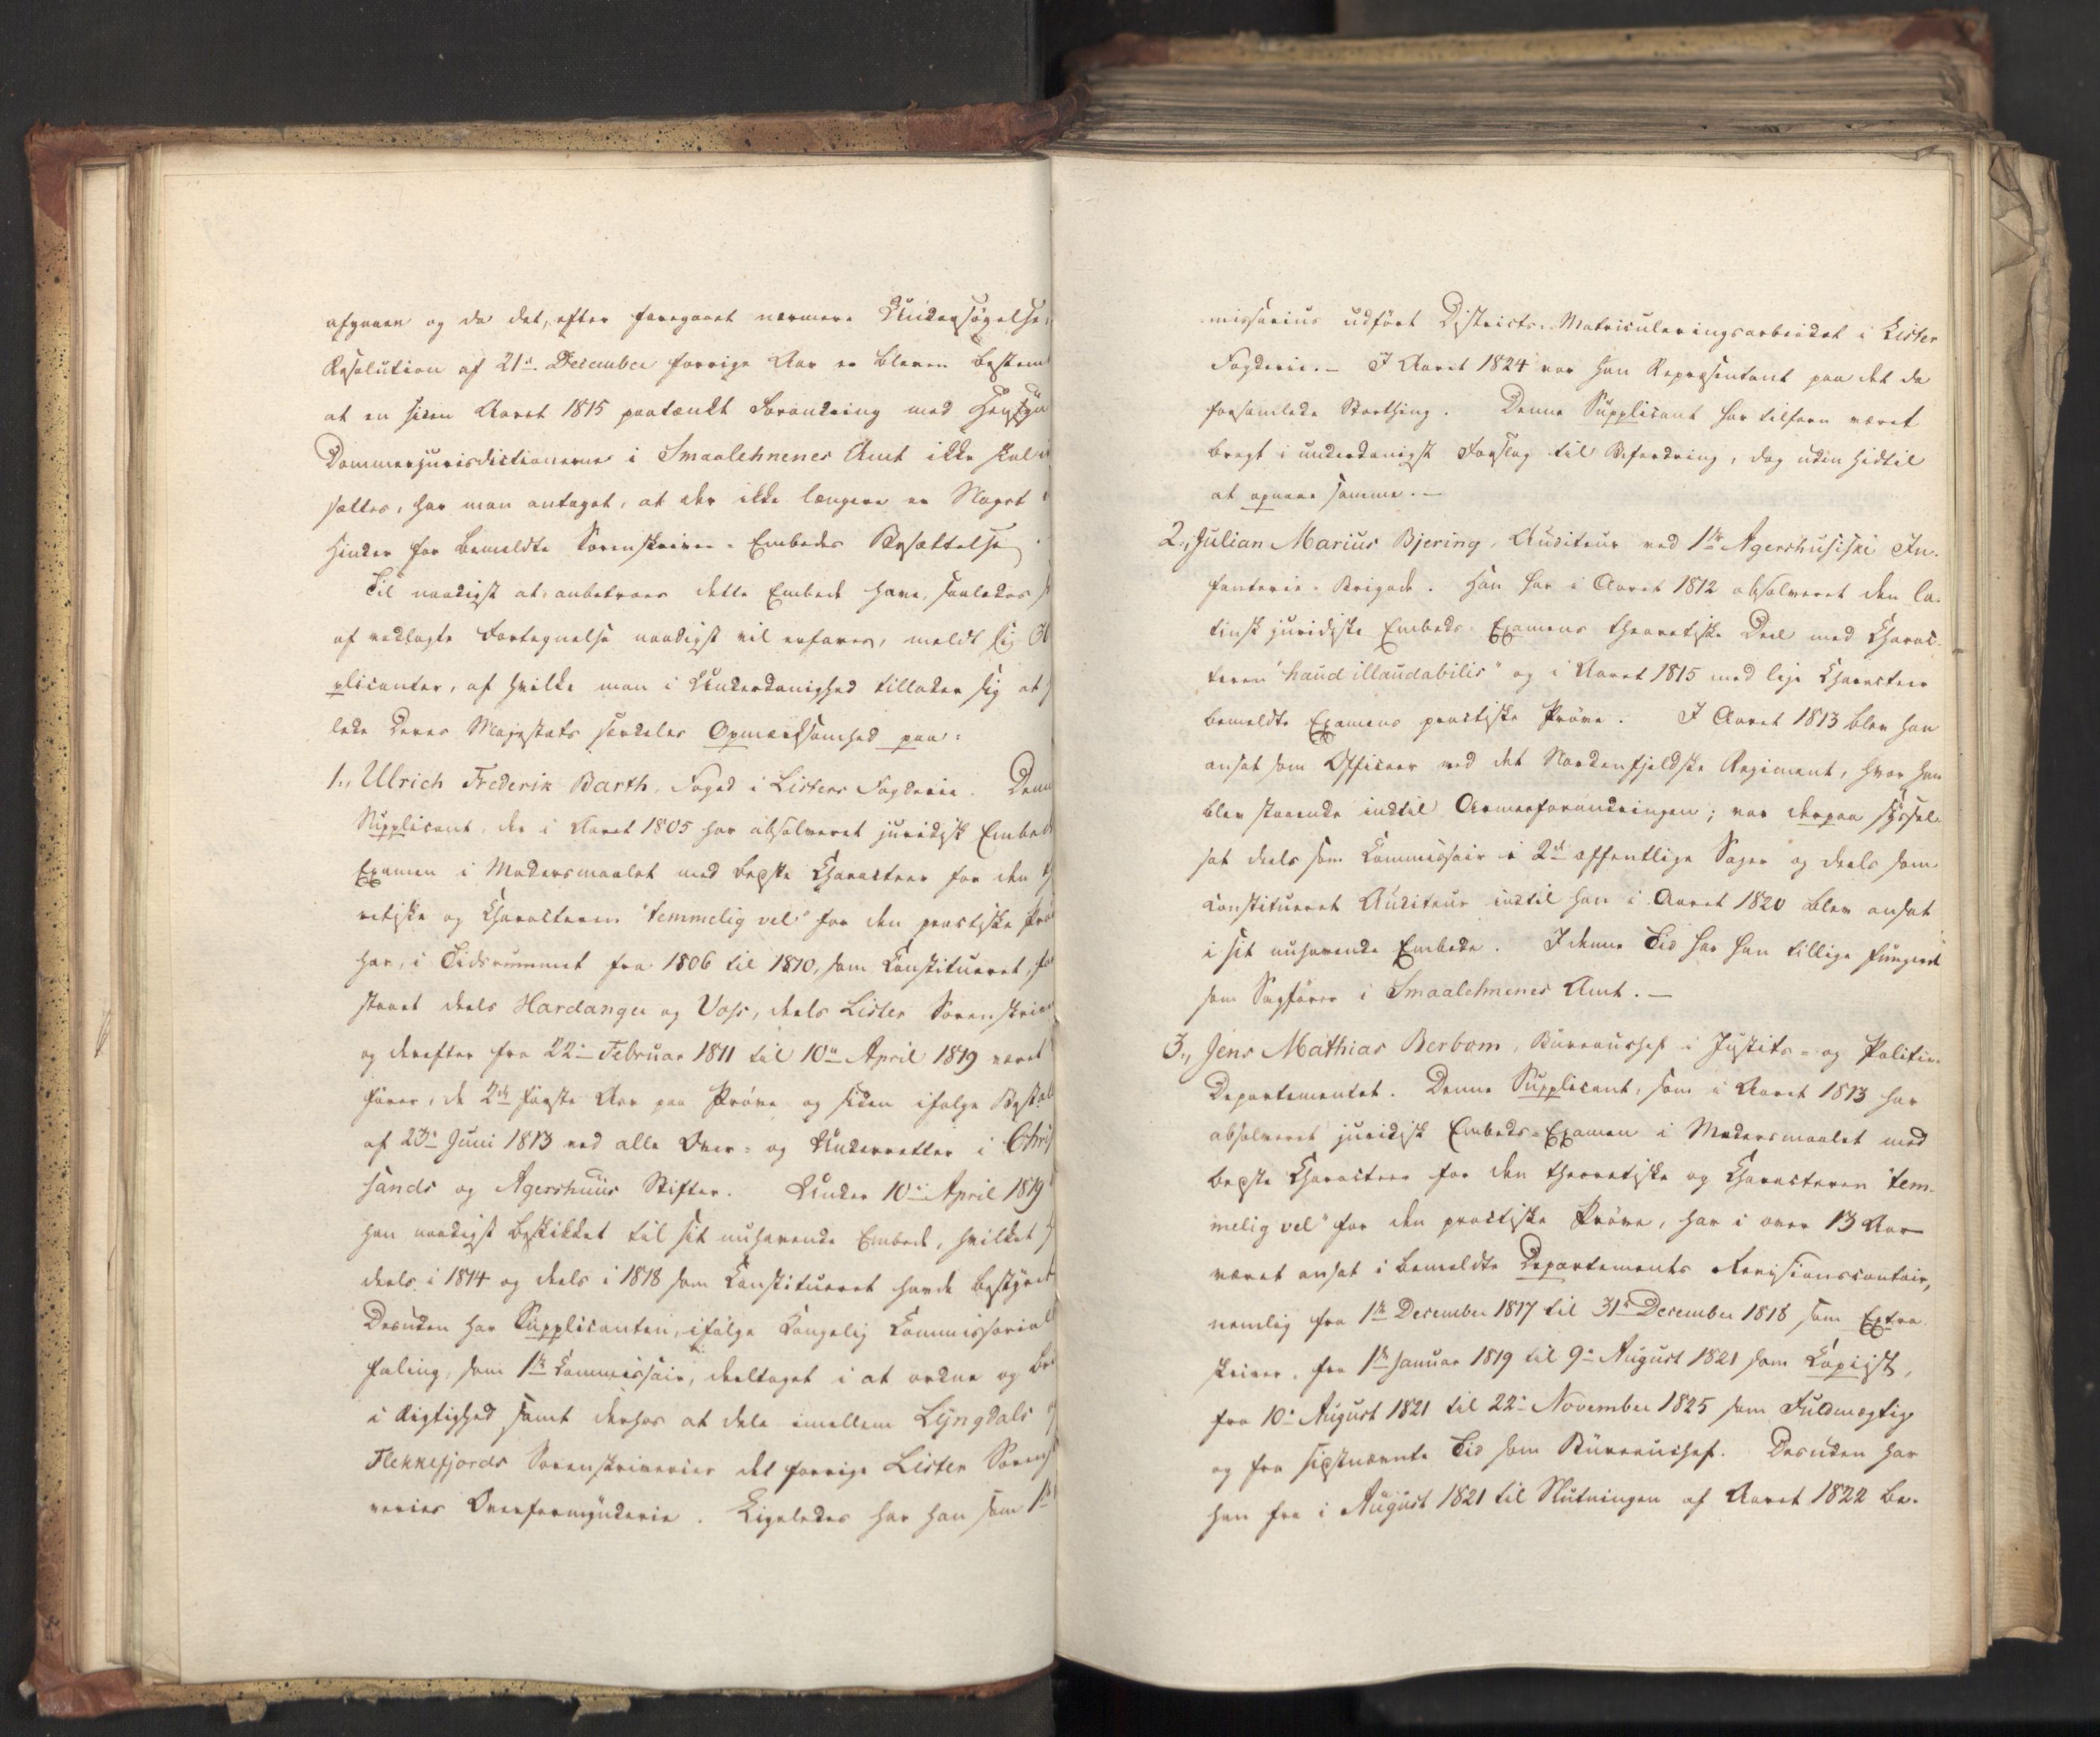 afgaaen og da det, efter foregaaet nærmere Undersøgelse,
Resolution af 21de December forrige Aar er bleven bestemt
at en siden Aaret 1815 paatænkt Forandring med Hensyn
Dommerjurisdictionerne i Smaalehnenes Amt ikke skal
sættes, har man antaget, at der ikke længere er Noget
Hinder for bemeldte Sorenskriver-Embedes Besættelse.
Til naadigst at anbetroes dette Embede have, saaledes
af vedlagte Fortegnelse naadigst vil erfares, meldt sig
plicanter, af hvilke man i Underdanighed tillader sig at
lede Deres Majestæts særdeles Opmærksomhed paa:
1., Ulrich Frederik Barth, Foged i Listers Fogderie. Denne
Supplicant, der i Aaret 1805 har absolveret juridisk Embeds
Examen i Modersmaalet med bedste Characteer for den
retiske og Characteren "temmelig vel" for den practiske Prø
har, i Tidsrummet fra 1806 til 1810, som Constitueret, for
staaet deels Hardanger og Voss, deels Lister Sorenskriv
og derefter fra 22de Februar 1811 til 10de April 1819 været
fører, de 2de første Aar paa Prøve og siden ifølge Bestall
af 23de Juni 1813 ved alle Over- og Underretter i Chris
sands og Agershuus Stifter. Under 10de April 1819
han naadigst beskikket til sit nuhavende Embede, hvilket
deels i 1814 og deels i 1818 som Constitueret havde bestyret
Desuden har Supplicanten, ifølge Kongelig Commissorial
faling, som 1ste Commissair, deeltaget i at ordne og
i Rigtighed samt derhos at dele imellem Lyngdals
Flekkefjords Sorenskriverier det forrige Lister Sorensk
veries Overformynderie. Ligeledes har han som 1ste
missarius udført Districts-Matriculeringsarbeidet i Lister
Fogderie. — I Aaret 1824 var han Repræsentant paa det da
forsamlede Storthing. Denne Supplicant har tilforn været
bragt i underdanigst Forslag til Befordring, dog uden hidtil
at opnaae samme. —
2., Julian Marius Bjering, Auditeur ved 1ste Agershusiske In-
fanterie-Brigade. Han har i Aaret 1812 absolveret den la-
tinsk juridiske Embeds-Examens theoretiske Deel med Charac-
teren "haud illaudabilis" og i Aaret 1815 med lige Characteer
bemeldte Examens practiske Prøve. I Aaret 1813 blev han
ansat som Officeer ved det Nordenfjeldske Regiment, hvor han
blev staaende indtil Armeeforandringen; var derpaa syssel-
sat deels som Commissair i 2de offentlige Sager og deels som
constitueret Auditeur indtil han i Aaret 1820 blev ansat
i sit nuhavende Embede. I denne Tid har han tillige fungeret
som Sagfører i Smaalehnenes Amt. —
3., Jens Mathias Berbom, Bureauchef i Justits- og Politie-
Departementet. Denne Supplicant, som i Aaret 1813 har
absolveret juridisk Embeds-Examen i Modersmaalet med
bedste Characteer for den theoretiske og Characteren "tem-
melig vel" for den practiske Prøve, har i over 13 Aar
været ansat i bemeldte Departements Revisionscontoir,
nemlig fra 1ste December 1817 til 31te December 1818 som Extra
skriver, fra 1ste Januar 1819 til 9de August 1821 som Copiist,
fra 10de August 1821 til 22de November 1825 som Fuldmægtig
og fra sidstnævnte Tid som Bureauchef. Desuden har
han fra i August 1821 til Slutningen af Aaret 1822 be-